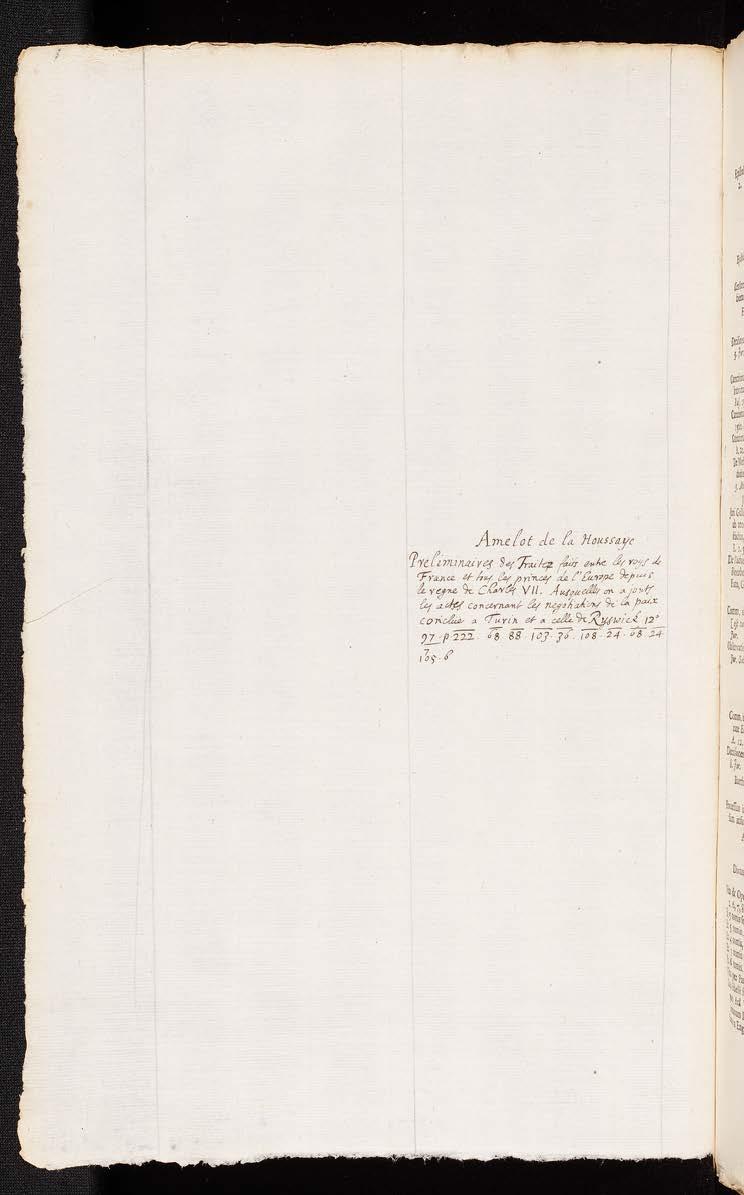 Amelot de la Houssaye
Preliminaires des Traitez faits entre les roys de
France et tous les princes de l'Europe depuis
le regne de Charles VII. Ausquelles on a joute
les actes concernant les negotiations de la paix
conclue a Turin et a celle de Ryswick 12°
97. p 222. 68. 88. 103. 36. 108. 24. 68. 24
7
105. 6